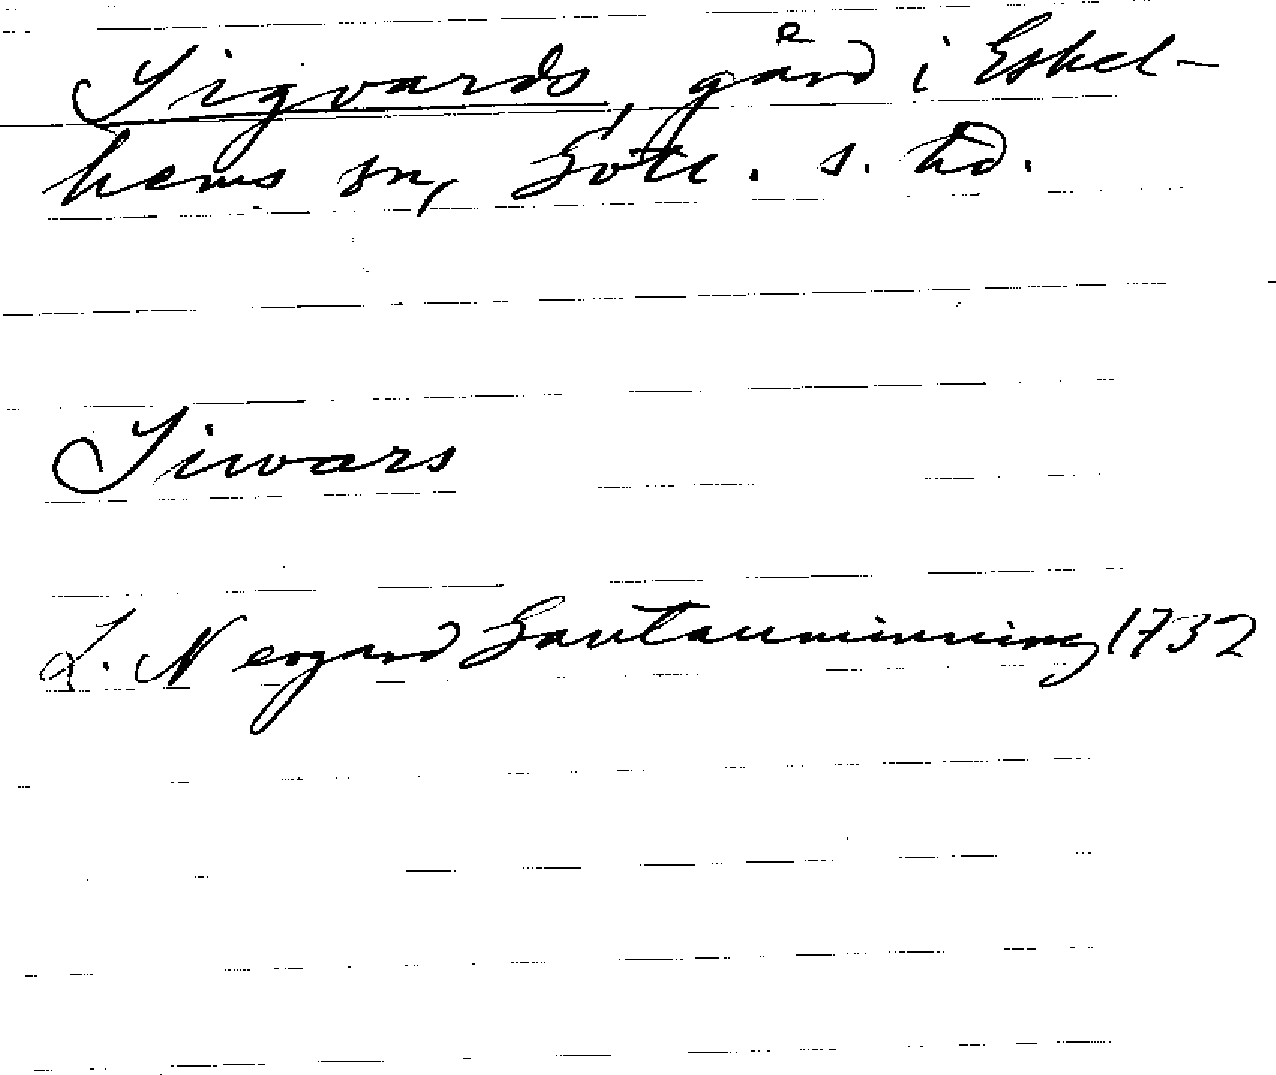 Sigvards, gård i Eskel-
hems sn, Gotl. s. hd.
Siwars
L. Neogard Gautauminning 1732